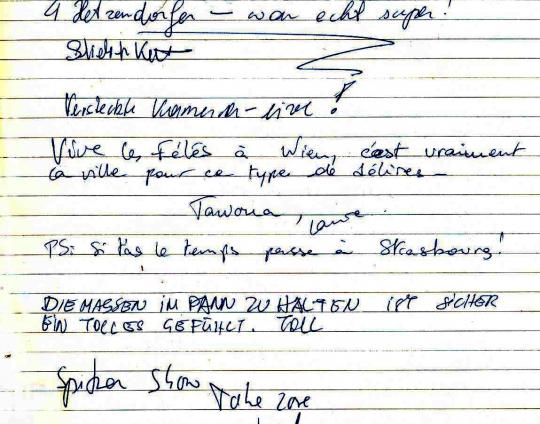 4 Hetzendorfer – war echt super!
Versteckte Kamera – live!
Vive les Fêlés à Wien, c'est vraiment
la ville pour ce type de délires –
Tawona,
PS: Si t'as le temps passe à Strasbourg!
DIE MASSEN IM BANN ZU HALTEN IST SICHER
EIN TOLLES GEFÜHL. TOLL
Spitzen Show
Take care